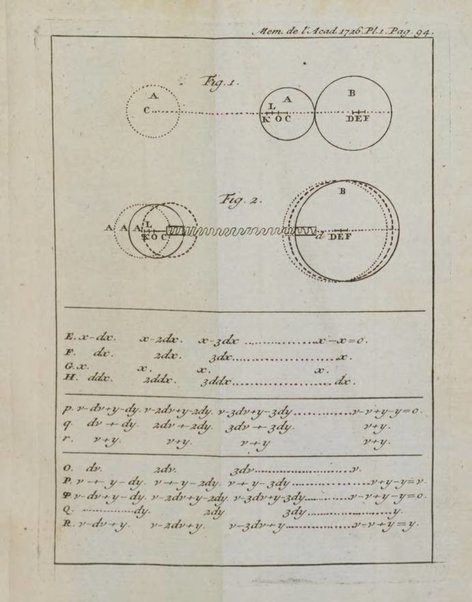 Mem. de l'Acad. 1726. Pl. 1. Pag. 94.
Fig. 1.
A B
C L A
K O C D E F
Fig. 2. B
A A A L
K O C d D E F
E. x-dx. x-2dx. x-3dx ............ x-x=0.
F. dx. 2dx. 3dx ............ x.
G. x. x. x. x.
H. ddx. 2ddx. 3ddx ............ dx.
p. v-dv+y-dy. v-2dv+y-2dy. v-3dv+y-3dy ............ v-v+y-y=0.
q. dv+dy. 2dv+2dy. 3dv+3dy. v+y.
r. v+y. v+y. v+y v+y.
O. dv. 2dv. 3dv ............ v.
P. v+y-dy. v+y-2dy. v+y-3dy ............ v+y-y=v.
P v-dv+y-dy. v-2dv+y-2dy. v-3dv+y-3dy ............ v-v+y-y=0.
Q ............ dy. 2dy 3dy ............ y.
R. v-dv+y. v-2dv+y. v-3dv+y ............ v-v+y=y.